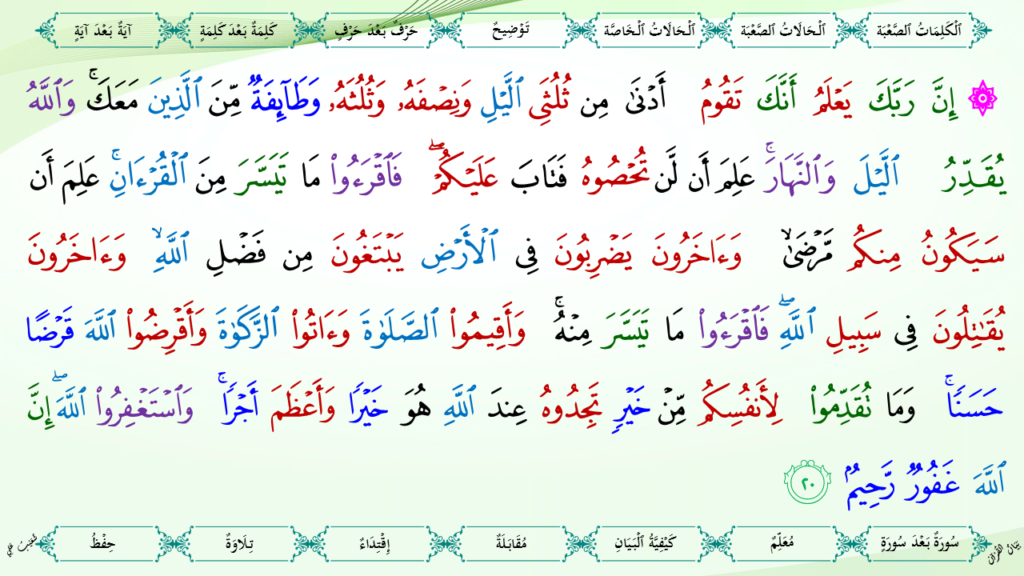 اَلْكَلِمَاتُ الصَّعْبَة اَلْحَالَاتُ الصَّعْبَة اَلْحَالَاتُ الْخَاصَّة تَوْضِيحٌ حَرْفٌ بَعْدَ حَرْفٍ كَلِمَةٌ بَعْدَ كَلِمَةٍ آيَةٌ بَعْدَ آيَةٍ
۞ إِنَّ رَبَّكَ يَعْلَمُ أَنَّكَ تَقُومُ أَدْنَىٰ مِن ثُلُثَيِ ٱلَّيْلِ وَنِصْفَهُۥ وَثُلُثَهُۥ وَطَآئِفَةٌ مِّنَ ٱلَّذِينَ مَعَكَ ۚ وَٱللَّهُ
يُقَدِّرُ ٱلَّيْلَ وَٱلنَّهَارَ ۚ عَلِمَ أَن لَّن تُحْصُوهُ فَتَابَ عَلَيْكُمْ ۖ فَٱقْرَءُوا۟ مَا تَيَسَّرَ مِنَ ٱلْقُرْءَانِ ۚ عَلِمَ أَن
سَيَكُونُ مِنكُم مَّرْضَىٰ ۙ وَءَاخَرُونَ يَضْرِبُونَ فِى ٱلْأَرْضِ يَبْتَغُونَ مِن فَضْلِ ٱللَّهِ ۙ وَءَاخَرُونَ
يُقَـٰتِلُونَ فِى سَبِيلِ ٱللَّهِ ۖ فَٱقْرَءُوا۟ مَا تَيَسَّرَ مِنْهُ ۚ وَأَقِيمُوا۟ ٱلصَّلَوٰةَ وَءَاتُوا۟ ٱلزَّكَوٰةَ وَأَقْرِضُوا۟ ٱللَّهَ قَرْضًا
حَسَنًا ۚ وَمَا تُقَدِّمُوا۟ لِأَنفُسِكُم مِّنْ خَيْرٍ تَجِدُوهُ عِندَ ٱللَّهِ هُوَ خَيْرًا وَأَعْظَمَ أَجْرًا ۚ وَٱسْتَغْفِرُوا۟ ٱللَّهَ ۖ إِنَّ
ٱللَّهَ غَفُورٌ رَّحِيمٌۢ ٢٠
سُورَةٌ بَعْدَ سُورَةٍ مُعَلِّمٌ كَيْفِيَّةُ الْبَيَانِ مُقَابَلَةٌ إِقْتِدَاءٌ تِلَاوَةٌ حِفْظٌ